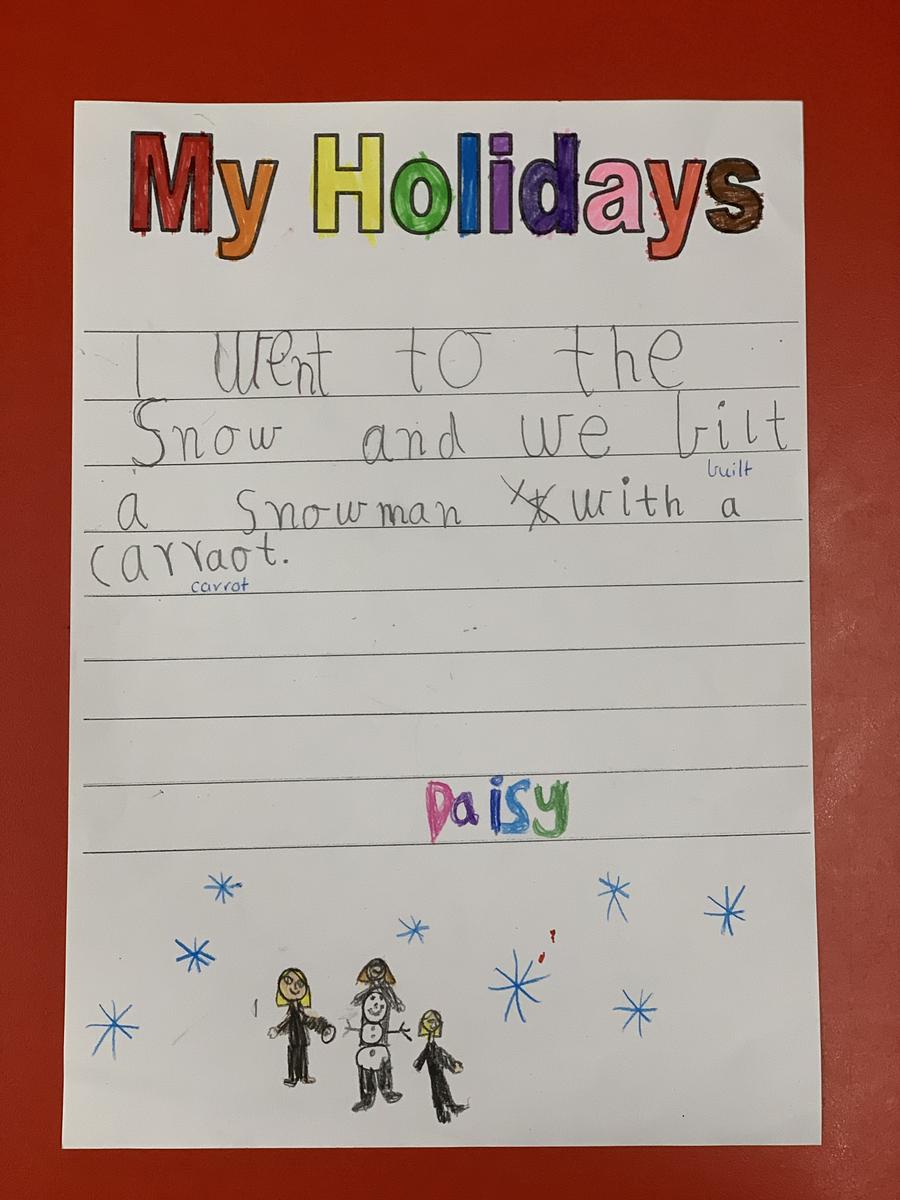 My Holidays
I went to the
Snow and we bilt
built
a Snowman with a
carraot.
carrot
Daisy